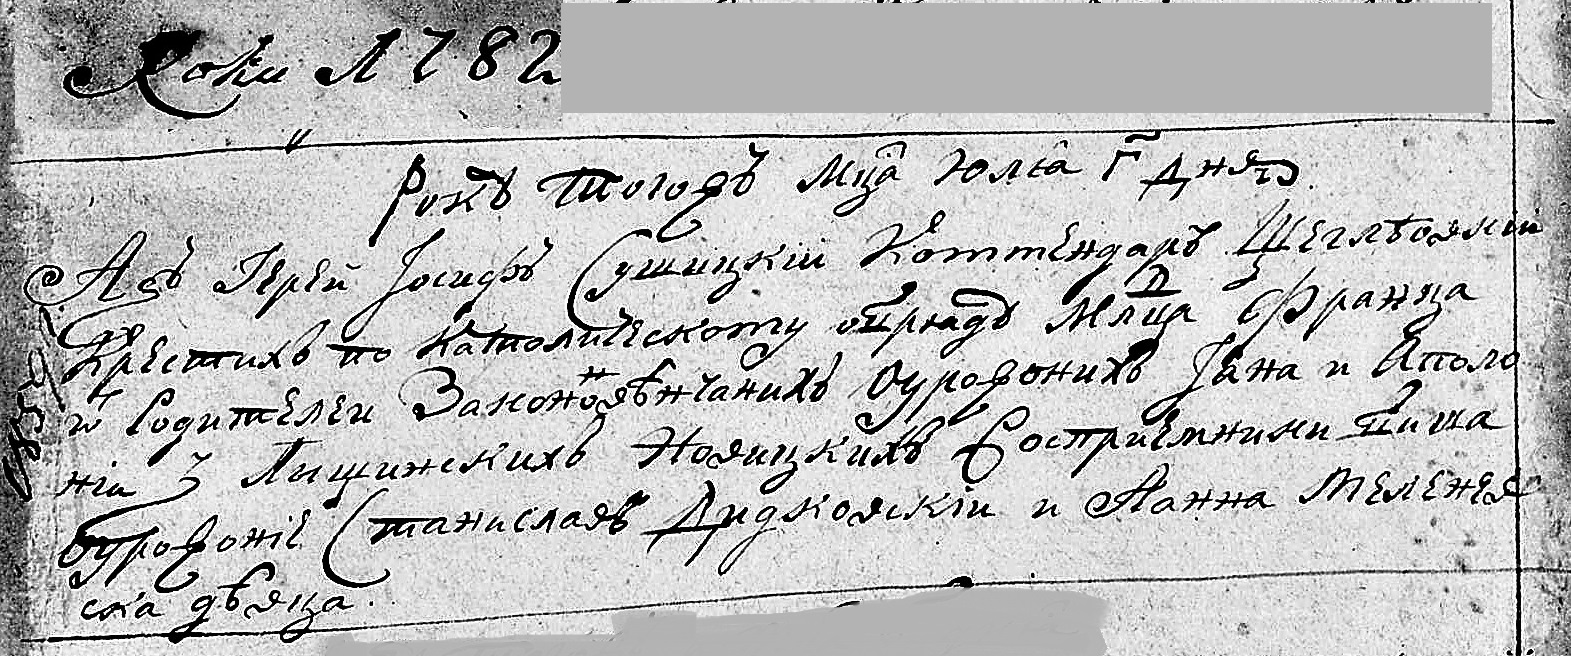 Року 1782
Рокъ тогожъ Мцⷭ҇а Юліа г҃ дня
Азъ Іерей Іосифъ Сушицкій Коммендаръ Щеглѣовскій
Крестихъ по Католическому обряду Млⷣнца Франца
ѿ Родителей Законновѣнчанихъ Оурожонихъ Іана и Аполо
ніи З Лыщинскихъ Новицкихъ Восприемники
Оурожоніе Станиславъ Дидковскій и Панна Меленев
ска дѣвица.